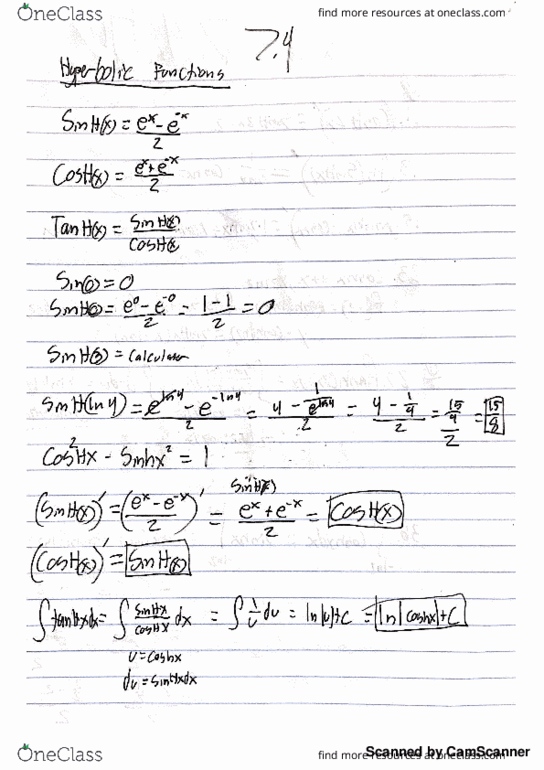 OneClass
find more resources at oneclass.com
7.4
Hyperbolic Functions
SinH(x) = e^x - e^-x / 2
CosH(x) = e^x + e^-x / 2
TanH(x) = SinH(x) / CosH(x)
Sin(0) = 0
SinH(0) = e^0 - e^-0 / 2 = 1 - 1 / 2 = 0
= Calculator
SinH(ln4) = e^ln4 - e^-ln4 / 2 = 4 - 1/e^ln4 / 2 = 4 - 1/4 / 2 = 15/4 / 2 = 15/8
Cos^2Hx - Sinhx^2 = 1
(SinH(x))' = (e^x - e^-x / 2)' = e^x + e^-x / 2 = CosH(x)
(CosH(x))' = SinH(x)
∫tanHxdx = ∫ SinHx / CosHx dx = ∫ 1/u du = ln|u|+C = ln|coshx|+C
u = coshx
du = sinHxdx
OneClass
find more resources at oneclass.com
Scanned by CamScanner